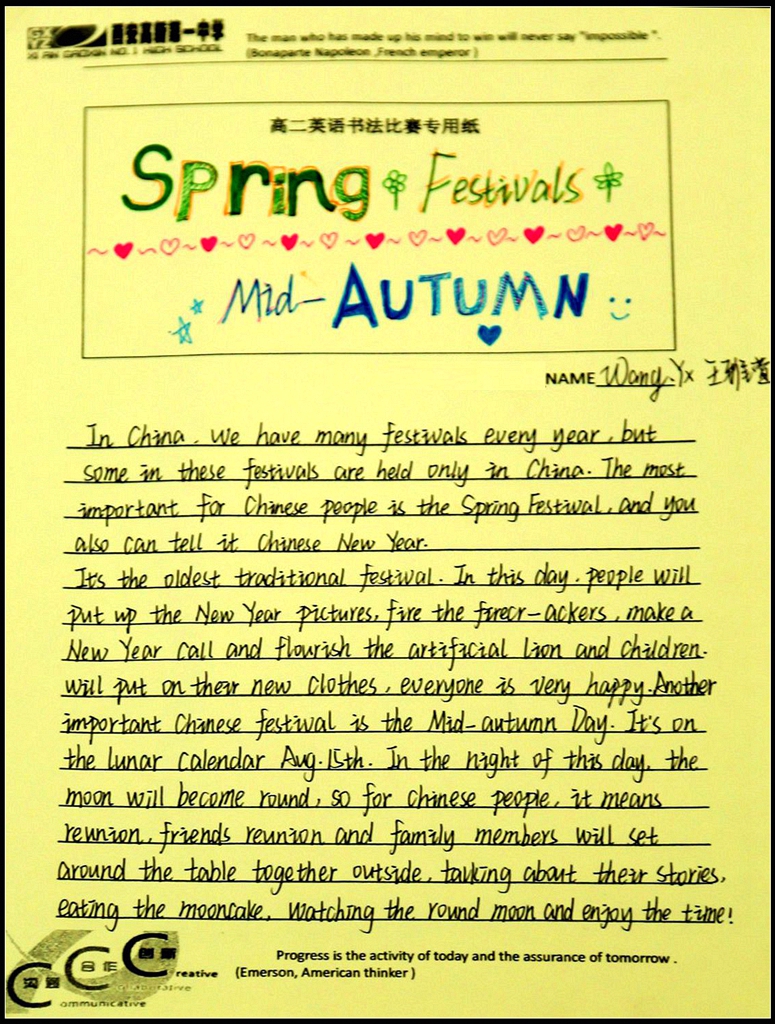 西安高新第一中学
XI AN GAOXIN NO. 1 HIGH SCHOOL
The man who has made up his mind to win will never say "impossible ".
(Bonaparte Napoleon ,French emperor )
高二英语书法比赛专用纸
Spring Festivals
Mid-AUTUMN
NAME Wang.Yx 王雅
In China, we have many festivals every year, but
some in these festivals are held only in China. The most
important for Chinese people is the Spring Festival, and you
also can tell it Chinese New Year.
It's the oldest traditional festival. In this day, people will
put up the New Year pictures, fire the firecr-ackers, make a
New Year call and flourish the artificial lion and children.
will put on their new clothes, everyone is very happy. Another
important Chinese festival is the Mid-autumn Day. It's on
the lunar calendar Aug.15th. In the night of this day, the
moon will become round, so for Chinese people, it means
reunion, friends reunion and family members will set
around the table together outside, talking about their stories,
eating the mooncake, watching the round moon and enjoy the time!
Progress is the activity of today and the assurance of tomorrow .
(Emerson, American thinker )
创新
合作
沟通
Creative
Collaborative
Communicative